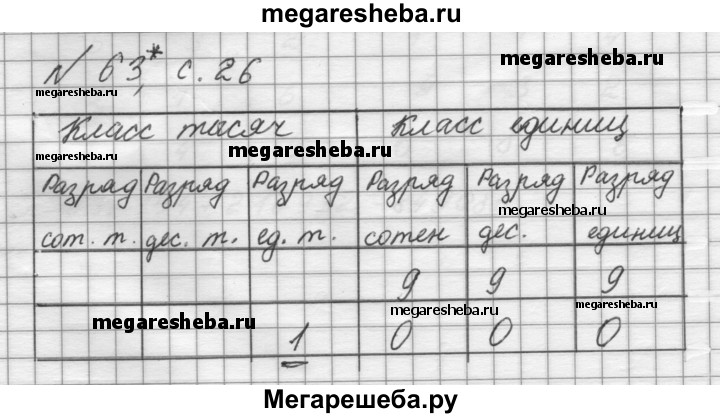 megaresheba.ru
№ 63* с. 26
megaresheba.ru
megaresheba.ru
Класс тысяч Класс единиц
megaresheba.ru
megaresheba.ru
Разряд Разряд Разряд Разряд Разряд Разряд
megaresheba.ru
сот. т. дес. т. ед. т. сотен дес. единиц
9 9 9
megaresheba.ru
megaresheba.ru
megaresheba.ru
1 0 0 0
Мегарешеба.ру